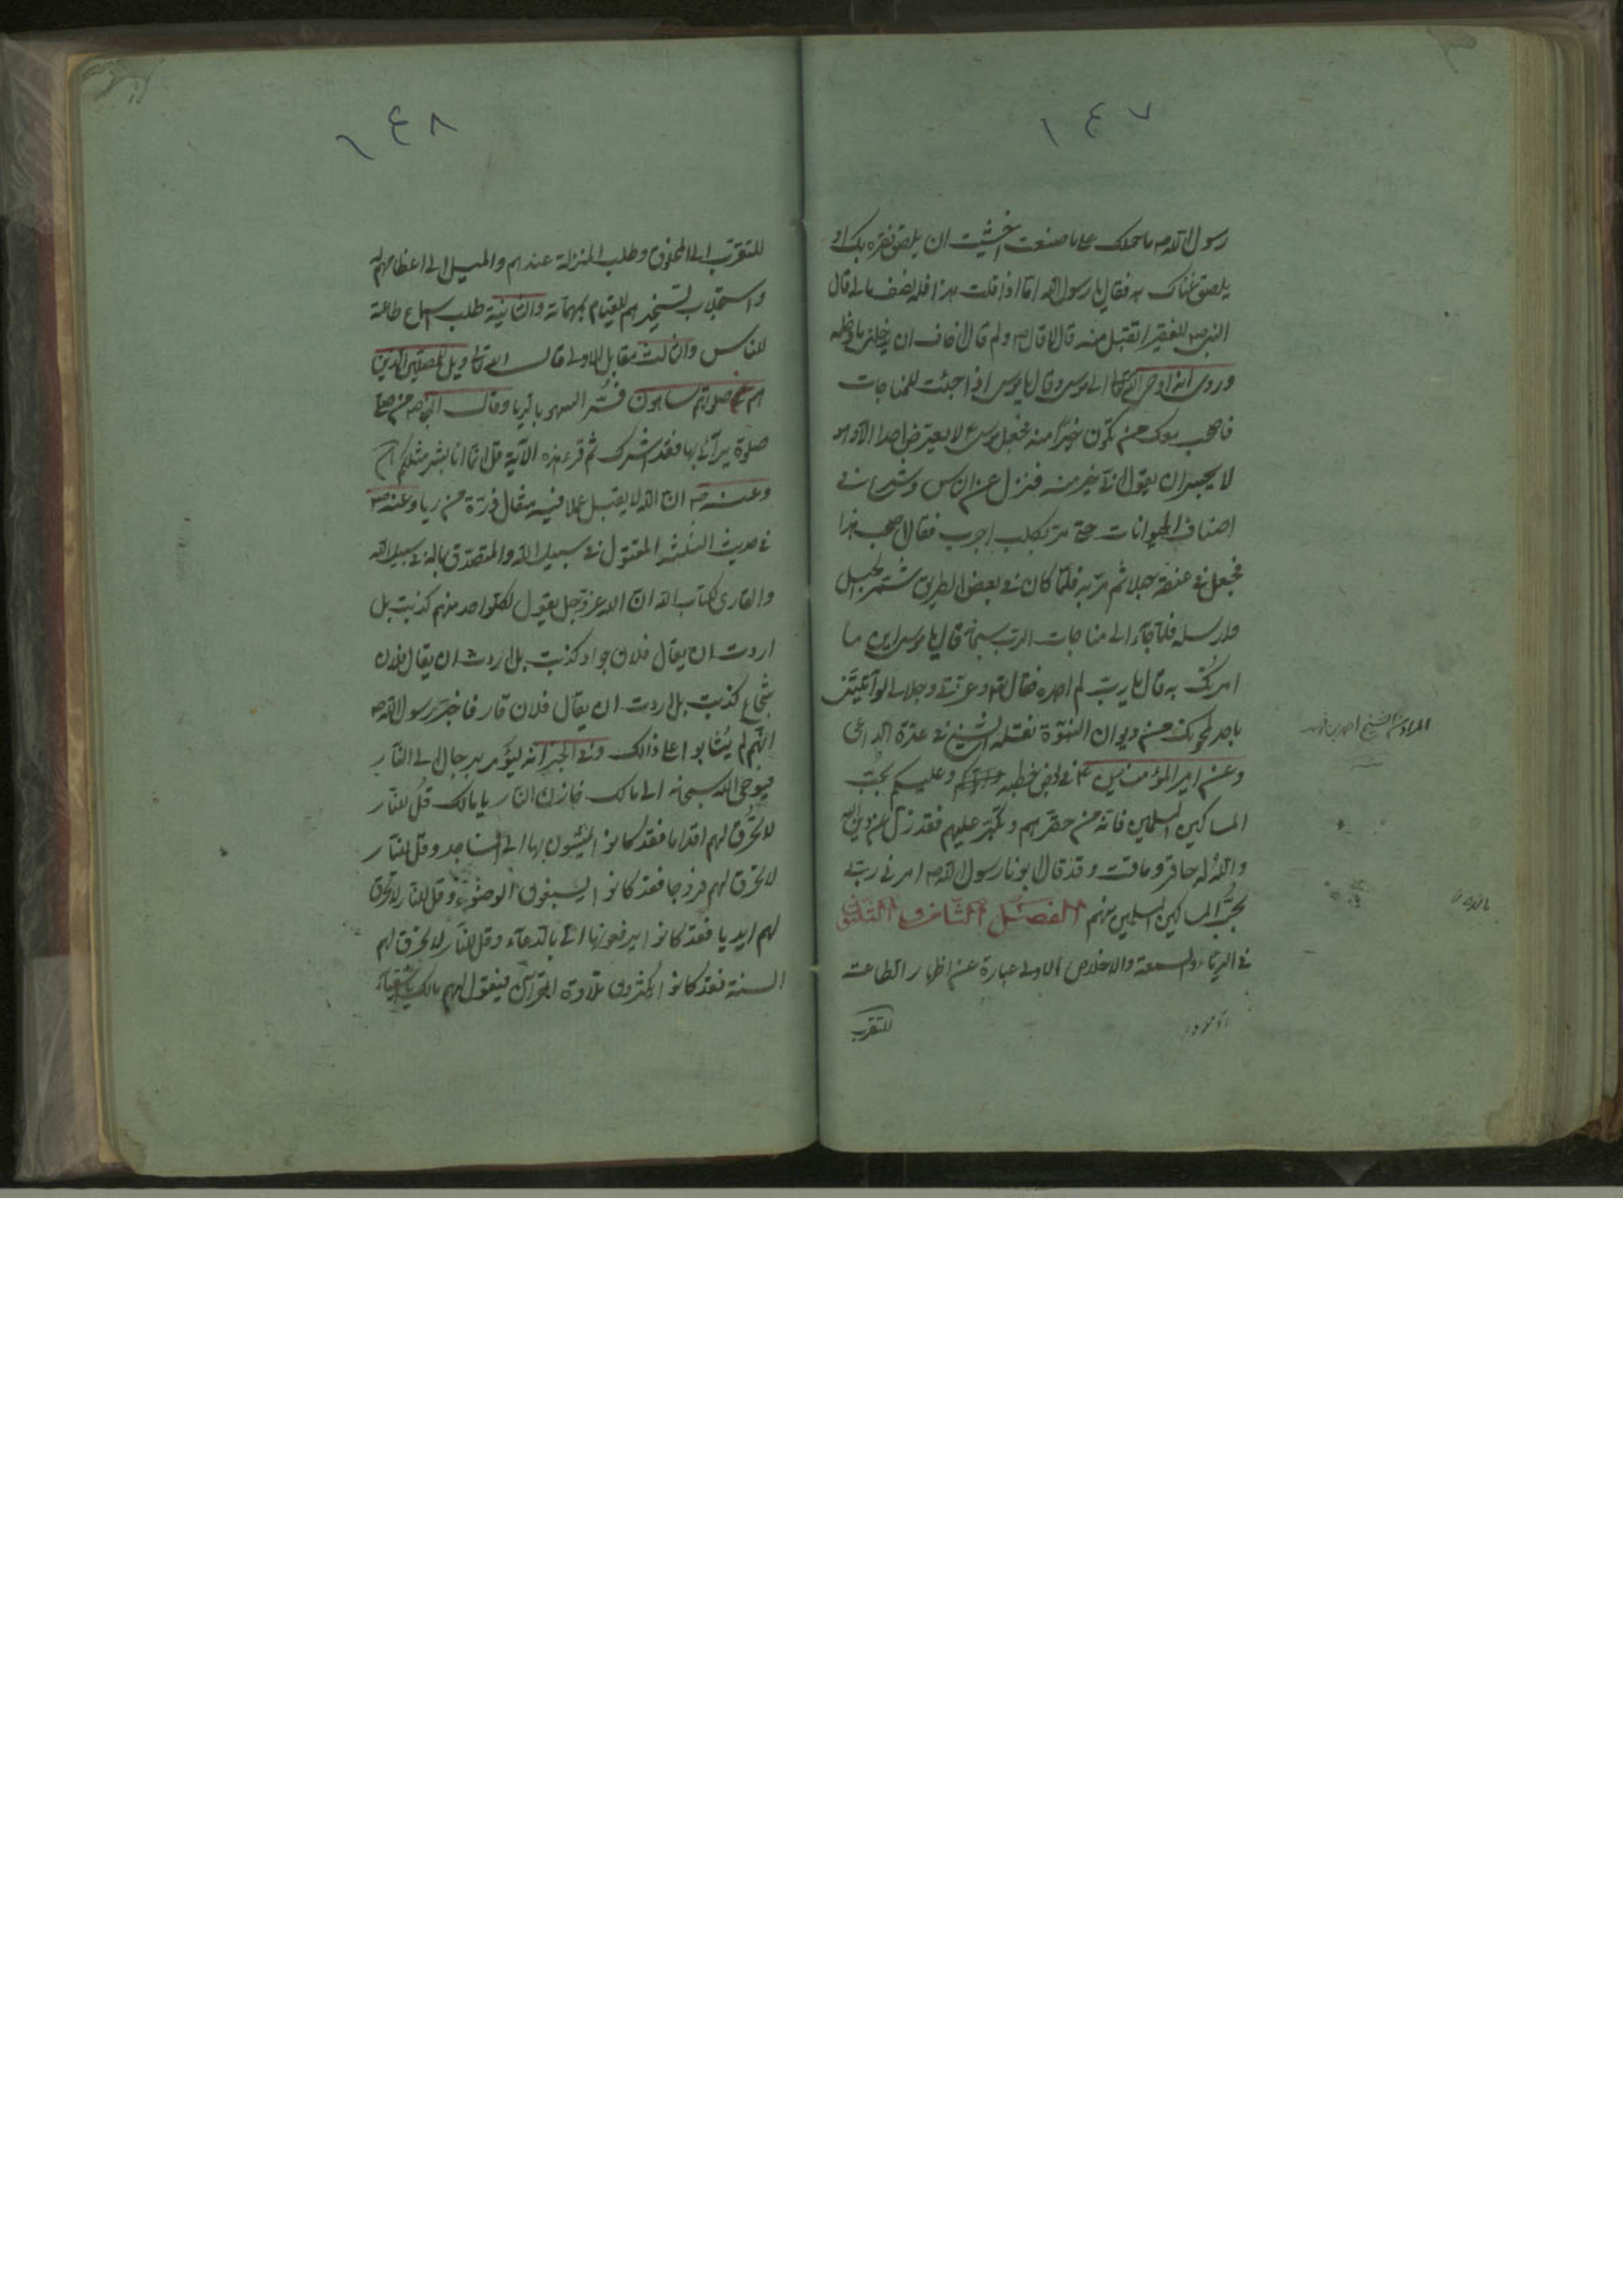 ١٤٧
رسول الله ص ما حملك على ما صنعت اخشيت ان يلصق فقره بك او
يلصق غناك به فقال يا رسول الله اما اذا قلت هذا فله نصف مالي قال
النبي ص للفقير اتقبل منه قال لا قال ص ولم قال اخاف ان يدخلني ما دخله
وروى انه اوحى الله تعالى الى موسى وقال يا موسى اذا جئت للمناجات
فاصحب معك من تكون خيرًا منه فجعل موسى ع لا يعترض احدا الا وهو
لا يجسر ان يقول اني خير منه فنزل عن الناس وشرع في
اصناف الحيوانات حتى مر بكلب اجرب فقال اصحب هذا
فجعل في عنقه حبلا ثم مرّ به فلمّا كان في بعض الطريق شمّر الحبل
وارسله فلمّا جاء الى مناجات الرب سبحانه قال يا موسى اين ما
امرتك به قال يا رب لم اجده فقال تع وعزتي وجلالي لو آتيتني
باحد لمحوتك من ديوان النبوّة نقله الشيخ في عدة الداعي
المراد من الشيخ احمد بن فهد
وعن امير المؤمنين ع في بعض خطبه وعليكم بحبّ
المساكين المسلمين فانه من حقرهم وتكبّر عليهم فقد زل عن دين الله
والله له حاقر وماقت وقد قال ابونا رسول الله ص امرني ربي
بحبّ المساكين المسلمين منهم الفصل الثاني والثلثون
في الرياء والسمعة والاخلاص الاولى عبارة عن اظهار الطاعة
للتقرب
١٤٨
للتقرّب الى المخلوق وطلب المنزلة عندهم والميل الى اعظامهم له
واستجلاب تسخيرهم للقيام بمهماته والثانية طلب اسماع طاعة
للناس والثالث مقابل للاولى قال الله تعالى ويل للمصلين الذين
هم عن صلوتهم ساهون فسّر السهو بالريا وقال النبي ص من صلى
صلوة يرآئى بها فقد اشرك ثم قرء هذه الآية قل انما انا بشر مثلكم الخ
وعنه ص ان الله لا يقبل عملا فيه مثقال ذرّة من ريا وعنه ص
في حديث الثلثة المقتول في سبيل الله والمتصدّق بماله في سبيل الله
والقارى لكتاب الله ان الله عزّ وجل يقول لكلّ واحد منهم كذبت بل
اردت ان يقال فلان جواد كذبت بل اردت ان يقال فلان
شجاع كذبت بل اردت ان يقال فلان قار فاخبر رسول الله ص
انّهم لم يُثابوا على ذالك وفي الخبر انه ليؤمر برجال الى النّار
فيوحى الله سبحانه الى مالك خازن النّار يا مالك قُل للنّار
لا تحرق لهم اقداما فقد كانوا يمشون بها الى المساجد وقل للنّار
لا تحرق لهم فروجا فقد كانوا يسبغون الوضوء وقل للنّار لا تحرق
لهم ايديا فقد كانوا يرفعونها اليّ بالدعاء وقل للنّار لا تحرق لهم
السنة فقد كانوا يكثرون تلاوة القرآن فيقول لهم مالك يا اشقياء